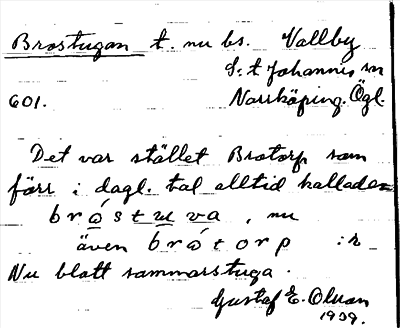 Brostugan t. nu bs. Vallby
S:t Johannis sn
601. Norrköping. Ögl.
Det var stället Brotorp som
förr i dagl. tal alltid kallades
bróstuva, nu
även brótorp :r
Nu blott sommarstuga.
Gustaf E. Olsson
1939.